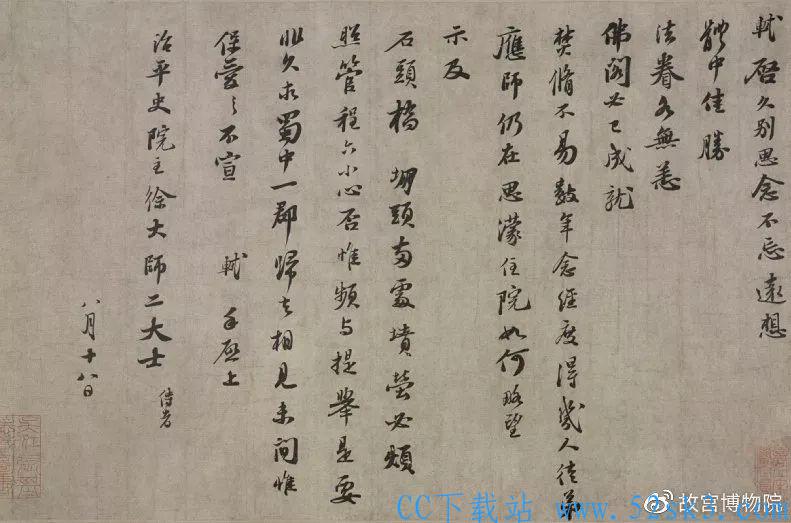 軾啓久别思念不忘遠想
體中佳勝
法眷各無恙
佛閣必已成就
焚脩不易數年念經度得幾人徒弟
應師仍在思濛住院如何略望
示及
石頭橋塴頭兩處墳塋必煩
照管程六小心否惟頻與提舉是要
非久求蜀中一郡歸去相見未間惟
保愛之不宣 軾手啓上
治平史院主徐大師二大士侍者
八月十八日
CC下载站
@故宫博物院